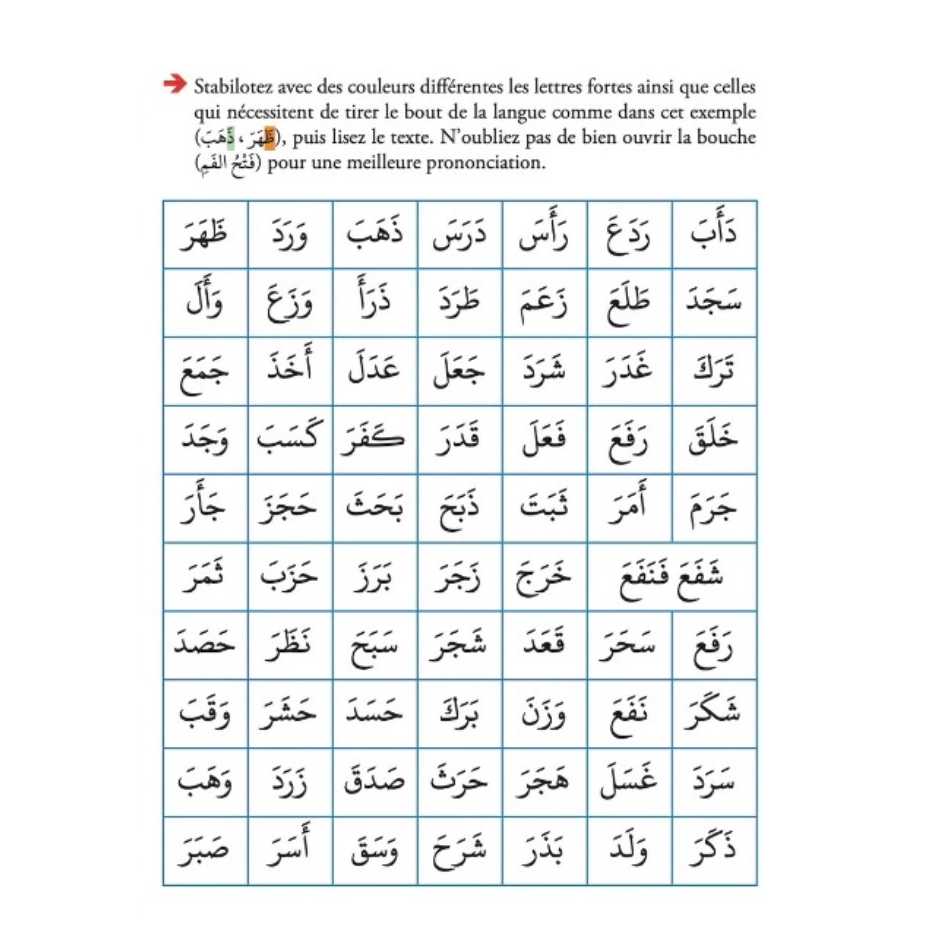 Stabilotez avec des couleurs différentes les lettres fortes ainsi que celles
qui nécessitent de tirer le bout de la langue comme dans cet exemple
(ظَهَرَ ، ذَهَبَ), puis lisez le texte. N'oubliez pas de bien ouvrir la bouche
(فَتْحُ الفَمِ) pour une meilleure prononciation.
دَأَبَ رَدَعَ رَأَسَ دَرَسَ ذَهَبَ وَرَدَ ظَهَرَ
سَجَدَ طَلَعَ زَعَمَ طَرَدَ ذَرَأَ وَزَعَ وَأَلَ
تَرَكَ غَدَرَ شَرَدَ جَعَلَ عَدَلَ أَخَذَ جَمَعَ
خَلَقَ رَفَعَ فَعَلَ قَدَرَ كَفَرَ كَسَبَ وَجَدَ
جَرَمَ أَمَرَ ثَبَتَ ذَبَحَ بَحَثَ حَجَزَ جَأَرَ
شَفَعَ فَنَفَعَ خَرَجَ زَجَرَ بَرَزَ حَزَبَ ثَمَرَ
رَفَعَ سَحَرَ قَعَدَ شَجَرَ سَبَحَ نَظَرَ حَصَدَ
شَكَرَ نَفَعَ وَزَنَ بَرَكَ حَسَدَ حَشَرَ وَقَبَ
سَرَدَ غَسَلَ هَجَرَ حَرَثَ صَدَقَ زَرَدَ وَهَبَ
ذَكَرَ وَلَدَ بَذَرَ شَرَحَ وَسَقَ أَسَرَ صَبَرَ